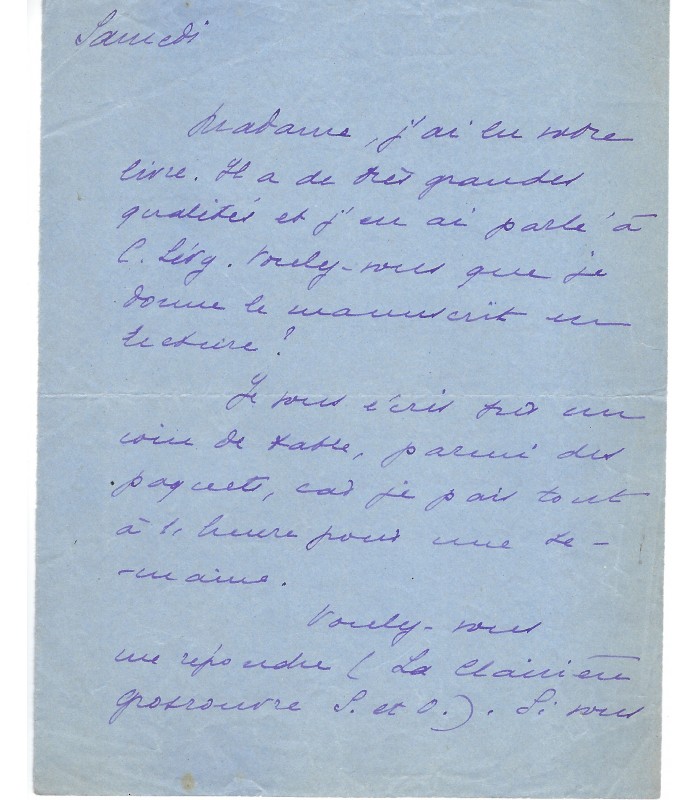 Samedi
Madame, j'ai lu votre
livre. Il a de très grandes
qualités et j'en ai parlé à
C. Lévy. Voulez-vous que je
donne le manuscrit en
lecture?
Je vous écris sur un
coin de table, parmi des
paquets, car je pars tout
à l'heure pour une se-
-maine.
Voulez-vous
me répondre (La Clairière
Grosrouvre S. et O.). Si vous